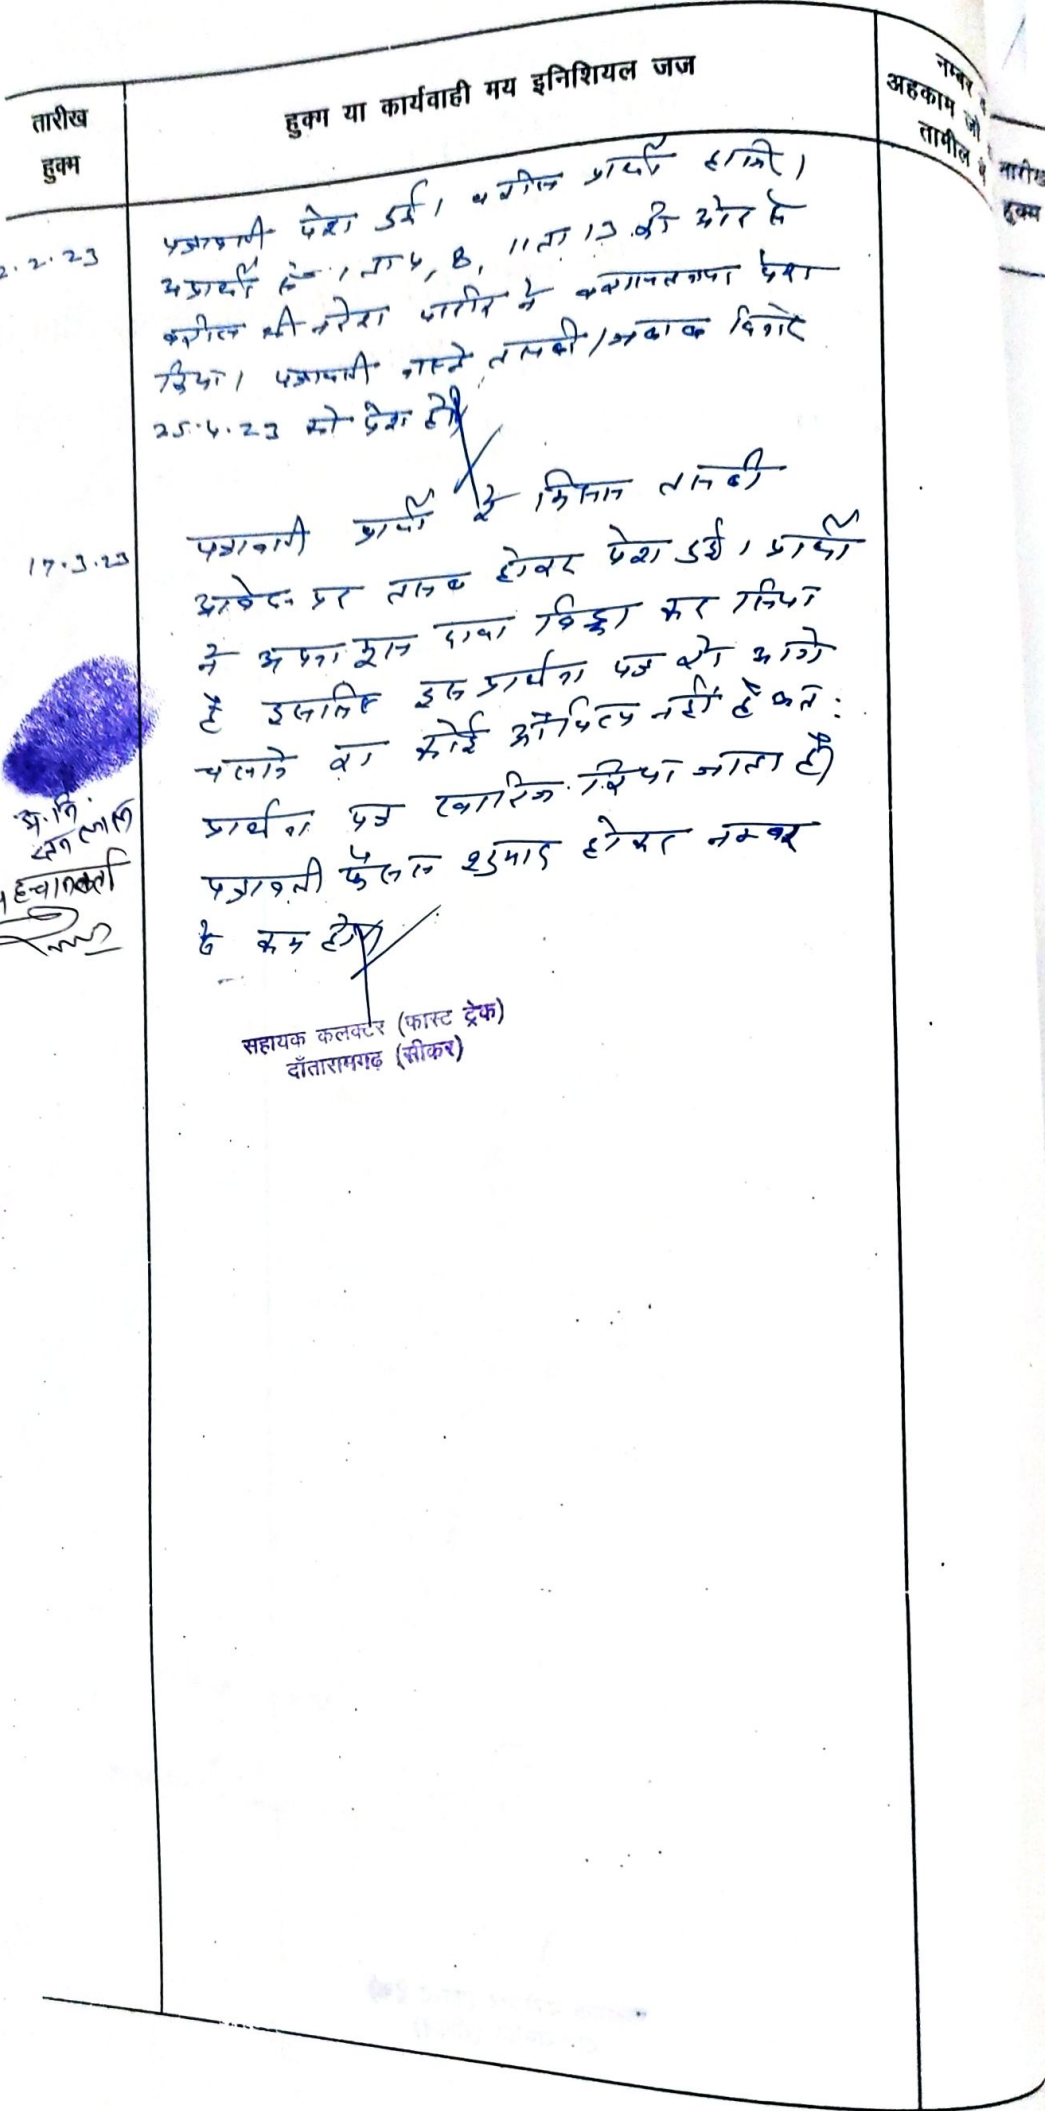 तारीख
हुक्म
हुक्म या कार्यवाही मय इनिशियल जज
नम्बर व
अहकाम जो
तामील में
तारीख
हुक्म
2.2.23
पत्रावली पेश हुई। वकील प्रार्थी हाजिर।
अप्रार्थी सं. 1 ता 4, 8, 11 ता 13 की ओर से
वकील श्री नरेश ने वकालतनामा पेश
किया। पत्रावली वास्ते तलबी/जवाब दिनांक
25.4.23 को पेश हो।
17.3.23
पत्रावली प्रार्थी के तलबी
आवेदन पर तलब होकर पेश हुई। प्रार्थी
ने अपना मूल दावा विड्रा कर लिया
है इसलिए इस प्रार्थना पत्र को आगे
चलाने का कोई औचित्य नहीं है अत:
प्रार्थना पत्र खारिज किया जाता है।
पत्रावली फैसल शुमार होकर नम्बर
से कम हो।
अं.नि.
लाल
पहचानकर्ता
सहायक कलक्टर (फास्ट ट्रेक)
दाँतारामगढ़ (सीकर)